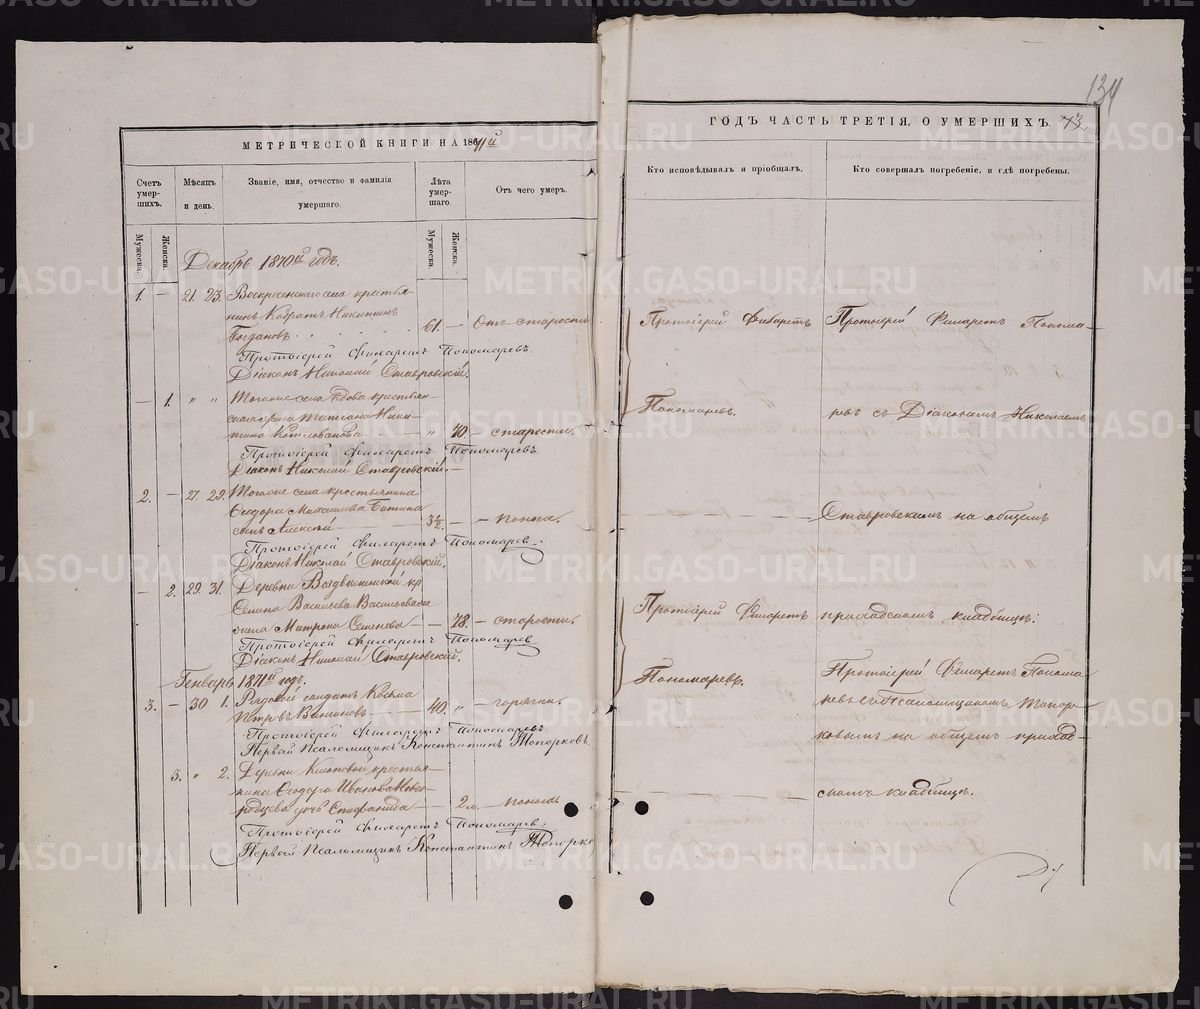 МЕТРИЧЕСКОЙ КНИГИ НА 1871й
Счетъ умер-шихъ.
Мѣсяцъ и день.
Званіе, имя, отчество и фамилія умершаго.
Лѣта умер-шаго.
Отъ чего умеръ.
Мужеска.
Женска.
Мужеска.
Женска.
Декабрь 1870й годъ.
1. — 21. 23. Воскресенскаго села крестья-
нинъ Кодратъ Никитинъ
Богдановъ. 61. — Отъ старости
Протоіерей Филаретъ Пономаревъ.
Діаконъ Николай Ставровскій.
— 1. " " Тогоже села вдова крестьян-
ская жена Татіана Ники-
тина " 70. — старости.
Протоіерей Филаретъ Пономаревъ.
Діаконъ Николай Ставровскій.
2. — 27. 29. Тогоже села крестьянина
Ѳеодора Михайлова
сынъ Алексѣй — 3½. — — поноса.
Протоіерей Филаретъ Пономаревъ.
Діаконъ Николай Ставровскій.
— 2. 29. 31. Деревни Воздвиженской кр.
Семена Васильева
жена Матрона Семенова — — 78. — старости.
Протоіерей Филаретъ Пономаревъ
Діаконъ Николай Ставровскій.
Генварь 1871й годъ.
3. — 30 1. Рядовой солдатъ Козьма
Петровъ — 40. " — горячки.
Протоіерей Филаретъ Пономаревъ
Первый Псаломщикъ Константинъ Топорковъ.
3. " 2. Деревни крестья-
нина Ѳеодора Иванова
дочь Епифанида — — 2 м. — поноса
Протоіерей Филаретъ Пономаревъ.
Первый Псаломщикъ Константинъ Топорко
134
ГОДЪ ЧАСТЬ ТРЕТІЯ, О УМЕРШИХЪ. 73.
Кто исповѣдывалъ и пріобщалъ.
Кто совершалъ погребеніе, и гдѣ погребены.
Протоіерей Филаретъ
Пономаревъ.
Протоіерей Филаретъ Понома-
ревъ съ Діакономъ Николаемъ
Ставровскимъ на общемъ
приходскомъ кладбищѣ:
Протоіерей Филаретъ
Пономаревъ.
Протоіерей Филаретъ Понома
ревъ съ Псаломщикомъ Топор-
ковымъ на общемъ приход-
скомъ кладбищѣ.